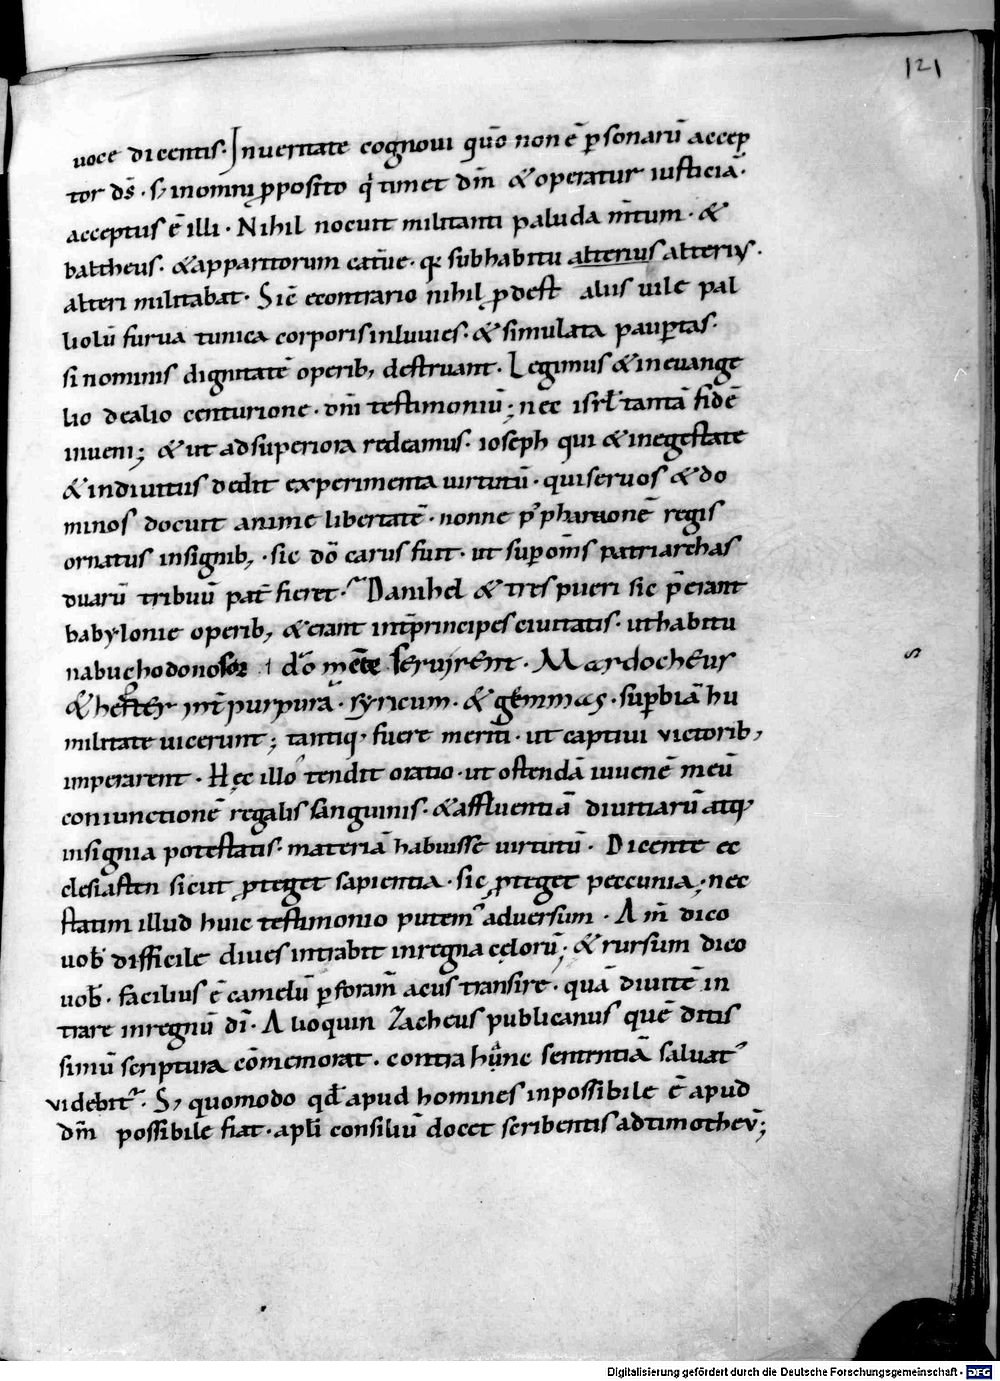 121
uoce dicentis. Inueritate cognoui qūo non ē p̄sonarū accep
tor ds̄. s; inomni p̱posito qi timet dm̄ & operatur iusticiā.
acceptus ē illi. Nihil nocuit militanti paluda m̄tum. &
baltheus. & apparitorum cateruę. q; subhabitu alterius alterius.
alteri militabat. Sic̄ econtrario nihil p̱dest aliis uile pal
liolū furua tunica corporis inluuies. & simulata paup̄tas.
si nominis dignitatē operib; destruant. Legimus & ineuange
lio dealio centurione. dn̄i testimoniū; nec isrl̄ tantā fidē
inueni; & ut adsuperiora redeamus. ioseph qui & inegestate
& indiuitiis dedit experimenta uirtutū. quiseruos & do
minos docuit anime libertatē. nonne p̱ pharaonē regis
ornatus insignib; . sic dō carus fuit. ut sup̄ om̄s patriarchas
duarū tribuū pat̄ fieret. Danihel & tres pueri sic p̄erant
babylonie operib; & erant int̄ principes ciuitatis. ut habitu
nabuchodonosor dō mente seruirent. Mardocheus
& hester int̄ purpurā. syricum. & gemmas. sup̄biā hu
militate uicerunt; tantiq; fuere meriti. ut captiui uictorib;
imperarent. Hęc illo tendit oratio. ut ostendā iuuenē meū
coniunctionē regalis sanguinis. & affluentiā diuitiarū atq;
insignia potestatis. materiā habuisse uirtutū. Dicente ec
clesiasten sicut p̱teget sapientia. sic p̱teget peccunia; nec
statim illud huic testimonio putem' aduersum. Am̄ dico
uob̄ difficile diues intrabit inregna cęlorū; & rursum dico
uob̄. facilius ē camelū p̄ foram̄ acus transire. quā diuitē in
trare inregnū dī. Alioquin Zacheus publicanus quē ditis
simū scriptura cōmemorat. contra hunc sententiā saluat'
uidebit'. S; quomodo qd̄ apud homines inpossibile ē apud
dm̄ possibile fiat. apl̄i consiliū docet scribentis adtimotheū;
Digitalisierung gefördert durch die Deutsche Forschungsgemeinschaft - DFG